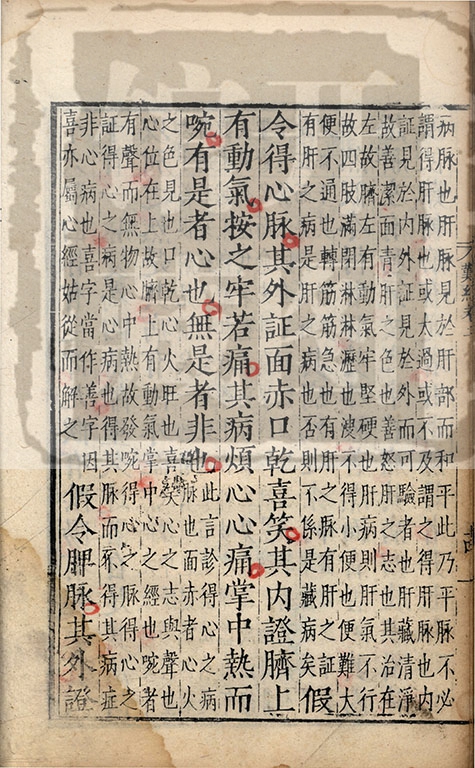 病脉也肝脉見於肝部而和平此乃平脉不必
謂得肝脉也或太過或不及謂之得肝脉也内
証見於内外証見於外而可驗者也肝藏清淨
故善潔面青肝之色也善怒肝之志也其治在
左故臍左有動氣牢堅硬也肝病則肝氣不行
故四肢滿閉淋淋瀝也溲不得小便也便難大
便不通也轉筋筋急也有肝之脉有肝之証
有肝之病是肝病也否則不係是藏病矣假
令得心脉其外証面赤口乾喜笑其内證臍上
有動氣按之牢若痛其病煩心心痛掌中熱而
啘有是者心也無是者非也此言診得心之病
脉也面赤者心火
之色見也口乾心火旺也喜笑心之志與聲也
心位在上故臍上有動氣掌中心之經也啘者
有聲而無物心中熱故發啘得心之脉得心之
証得心之病是心病也得其脉而不得其病症
非心病也喜字當作善字因
喜亦屬心經姑從而解之
假令脾脉其外證